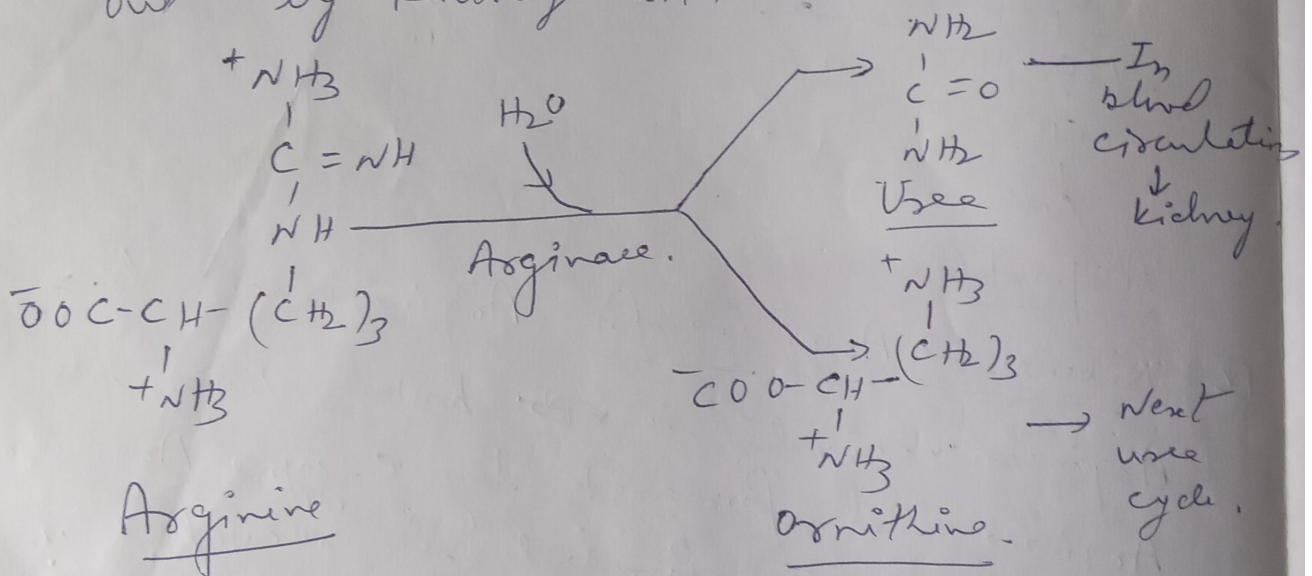 by
+NH3
C = NH
NH
-OOC-CH-(CH2)3
+NH3
Arginine
H2O
Arginase.
NH2
C =O
NH2
Urea
In
blood
circulation
↓
kidney.
+NH3
(CH2)3
-COO-CH-
+NH3
Ornithine.
→ Next
urea
cycle.